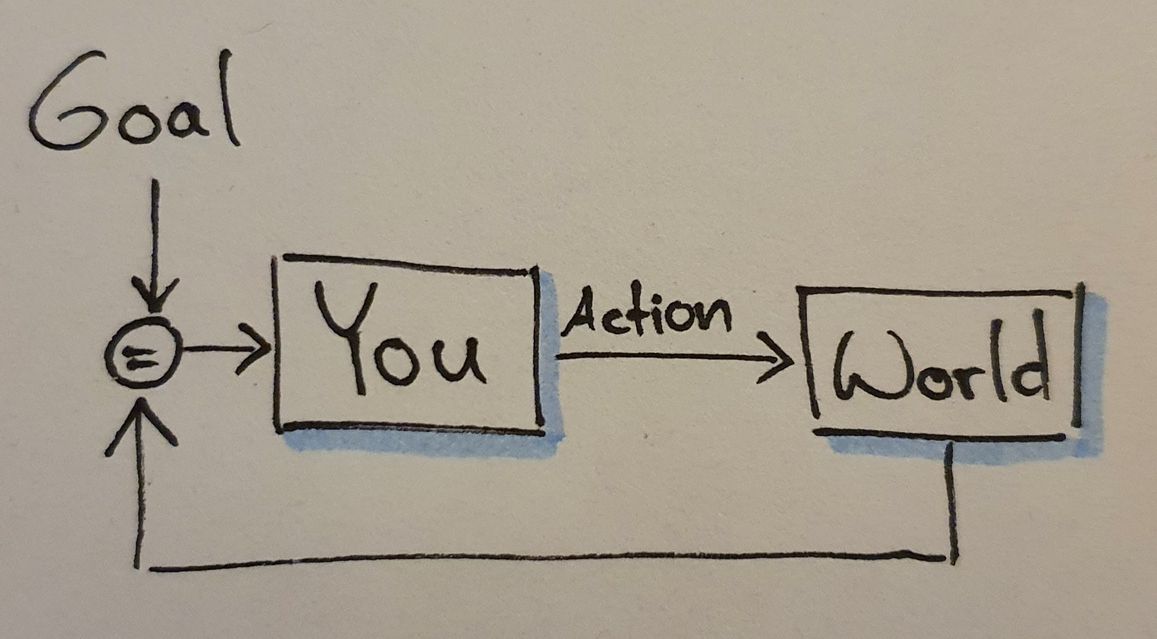 Goal
=
You
Action
World